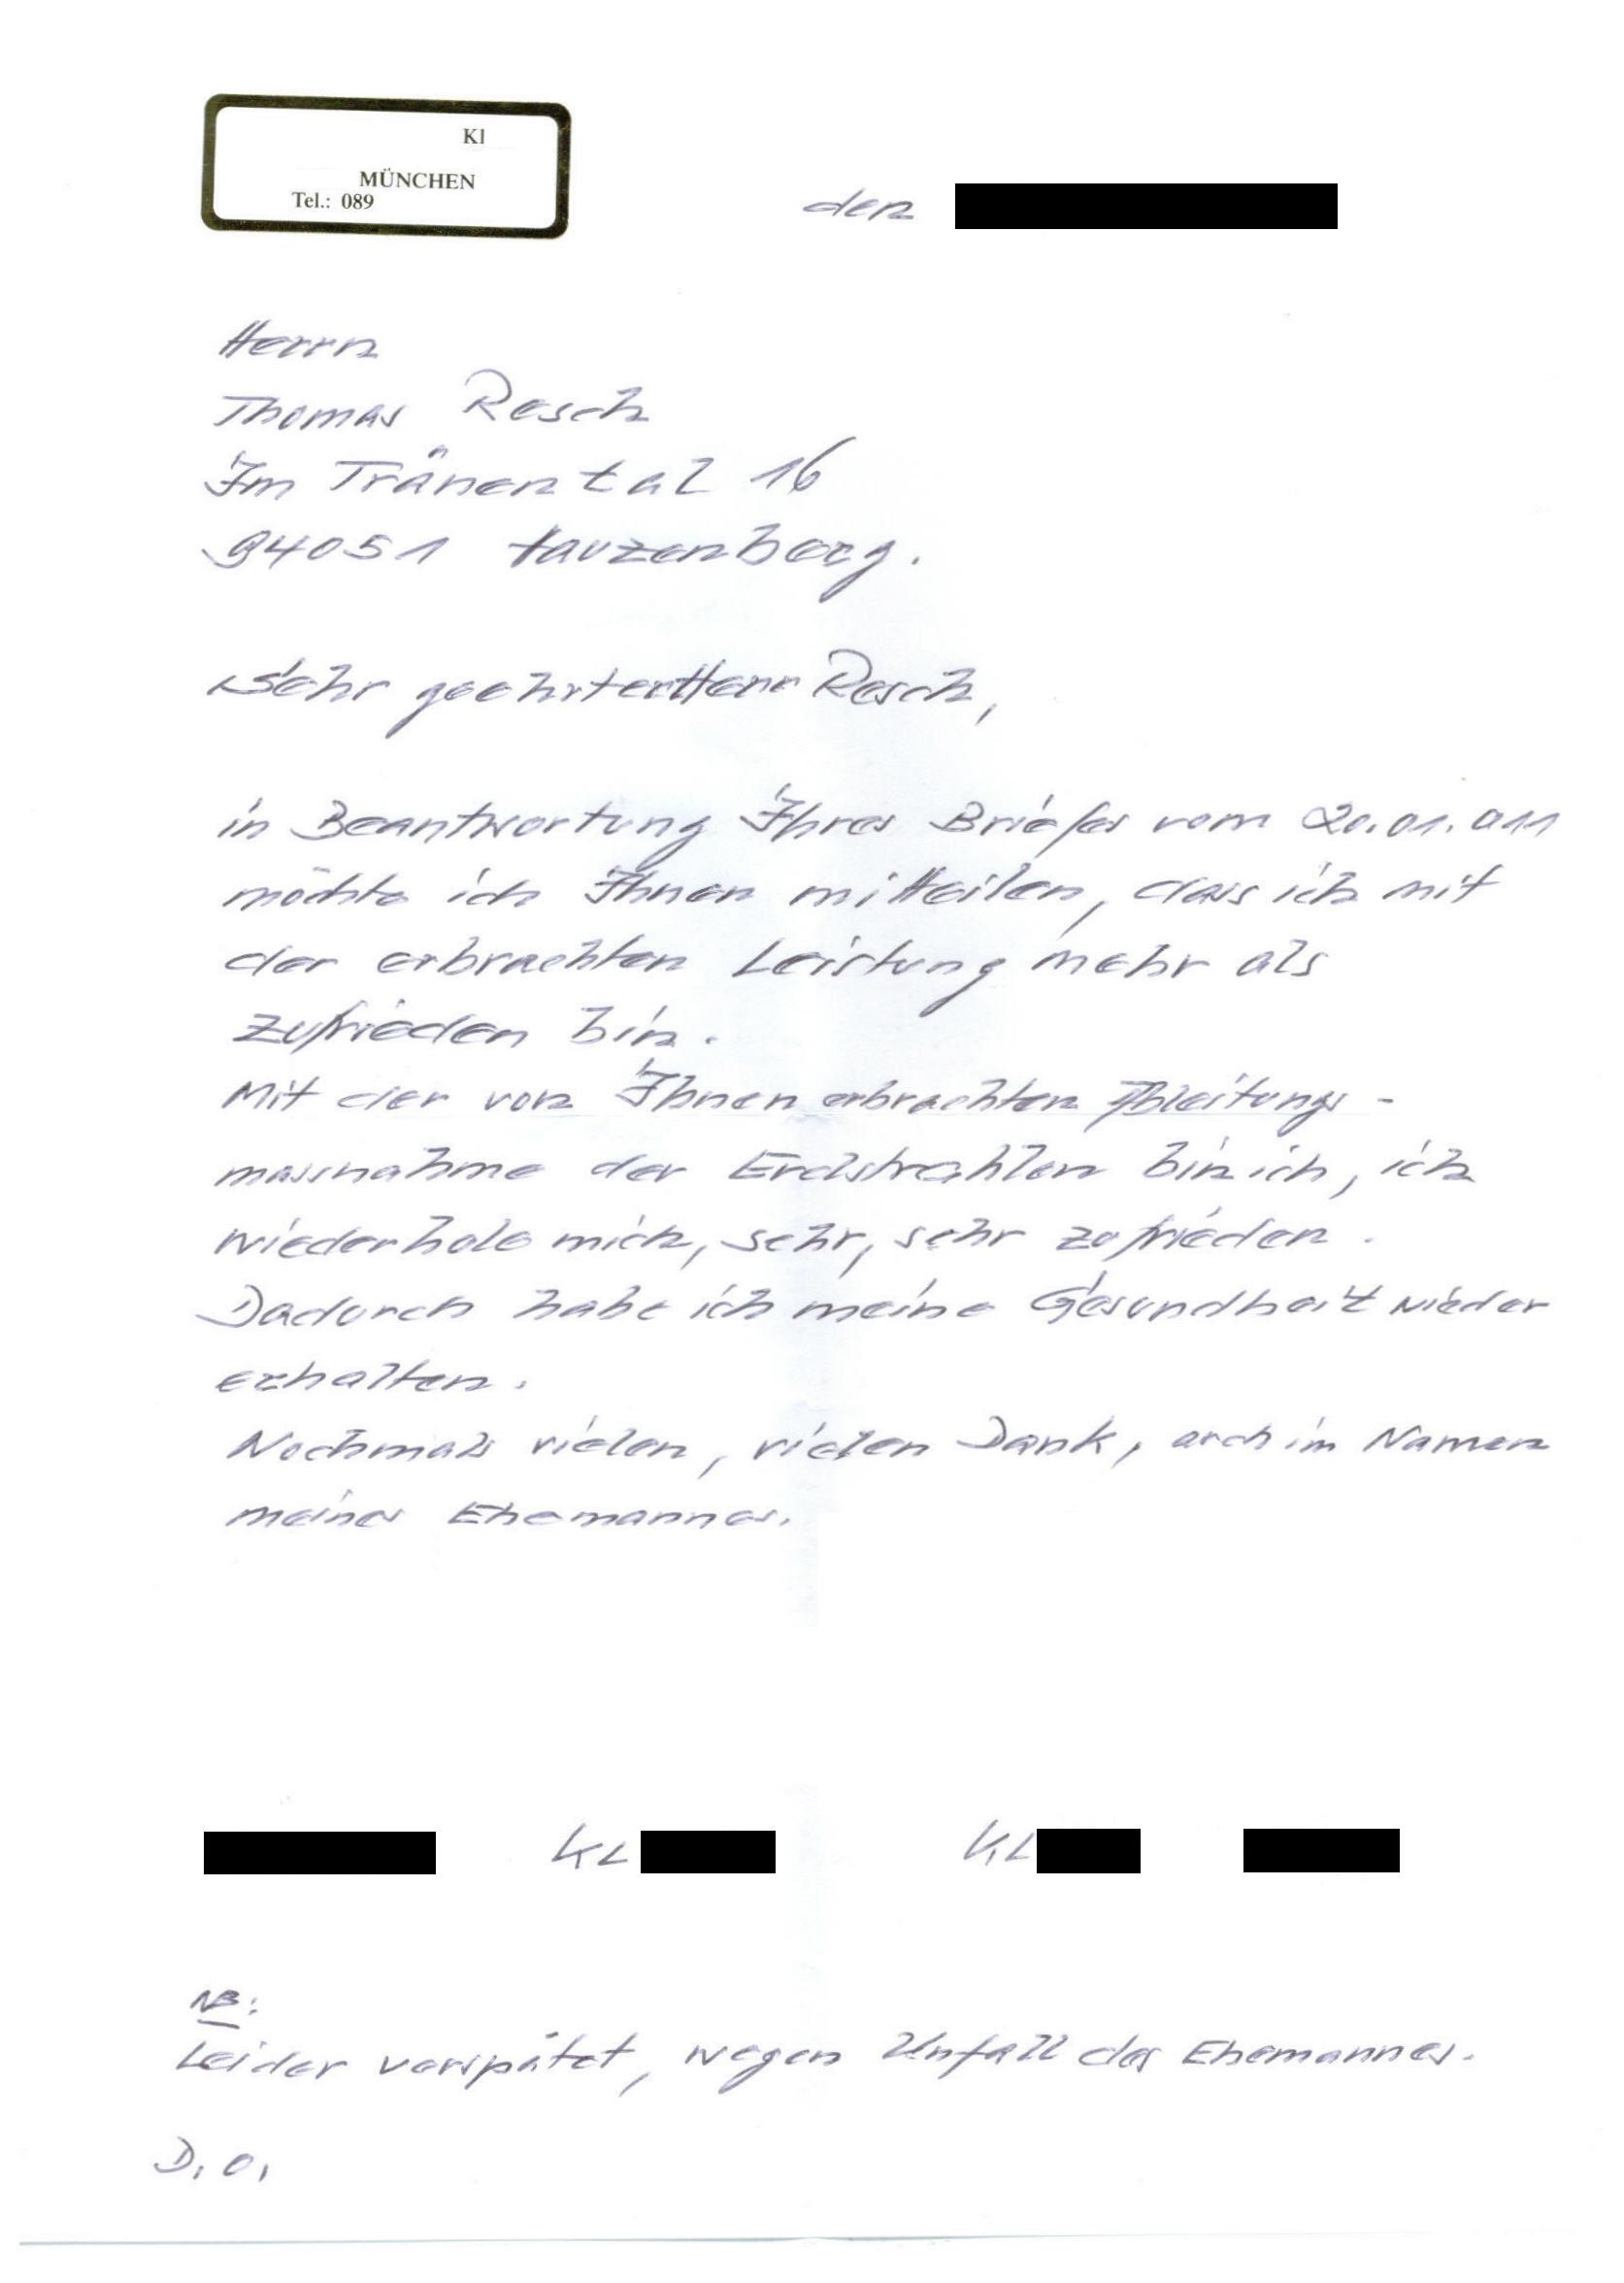 Kl
MÜNCHEN
Tel.: 089
den
Herrn
Thomas Resch
Im Tränental 16
94051 Hauzenberg.
Sehr geehrter Herr Resch,
in Beantwortung Ihres Briefes vom 20.01.011
möchte ich Ihnen mitteilen, dass ich mit
der erbrachten Leistung mehr als
zufrieden bin.
Mit der von Ihnen erbrachten Ableitungs-
massnahme der Erdstrahlen bin ich, ich
wiederhole mich, sehr, sehr zufrieden.
Dadurch habe ich meine Gesundheit wieder
erhalten.
Nochmals vielen, vielen Dank, auch im Namen
meines Ehemannes.
KL KL
NB:
Leider verspätet, wegen Unfall des Ehemannes.
D. O.